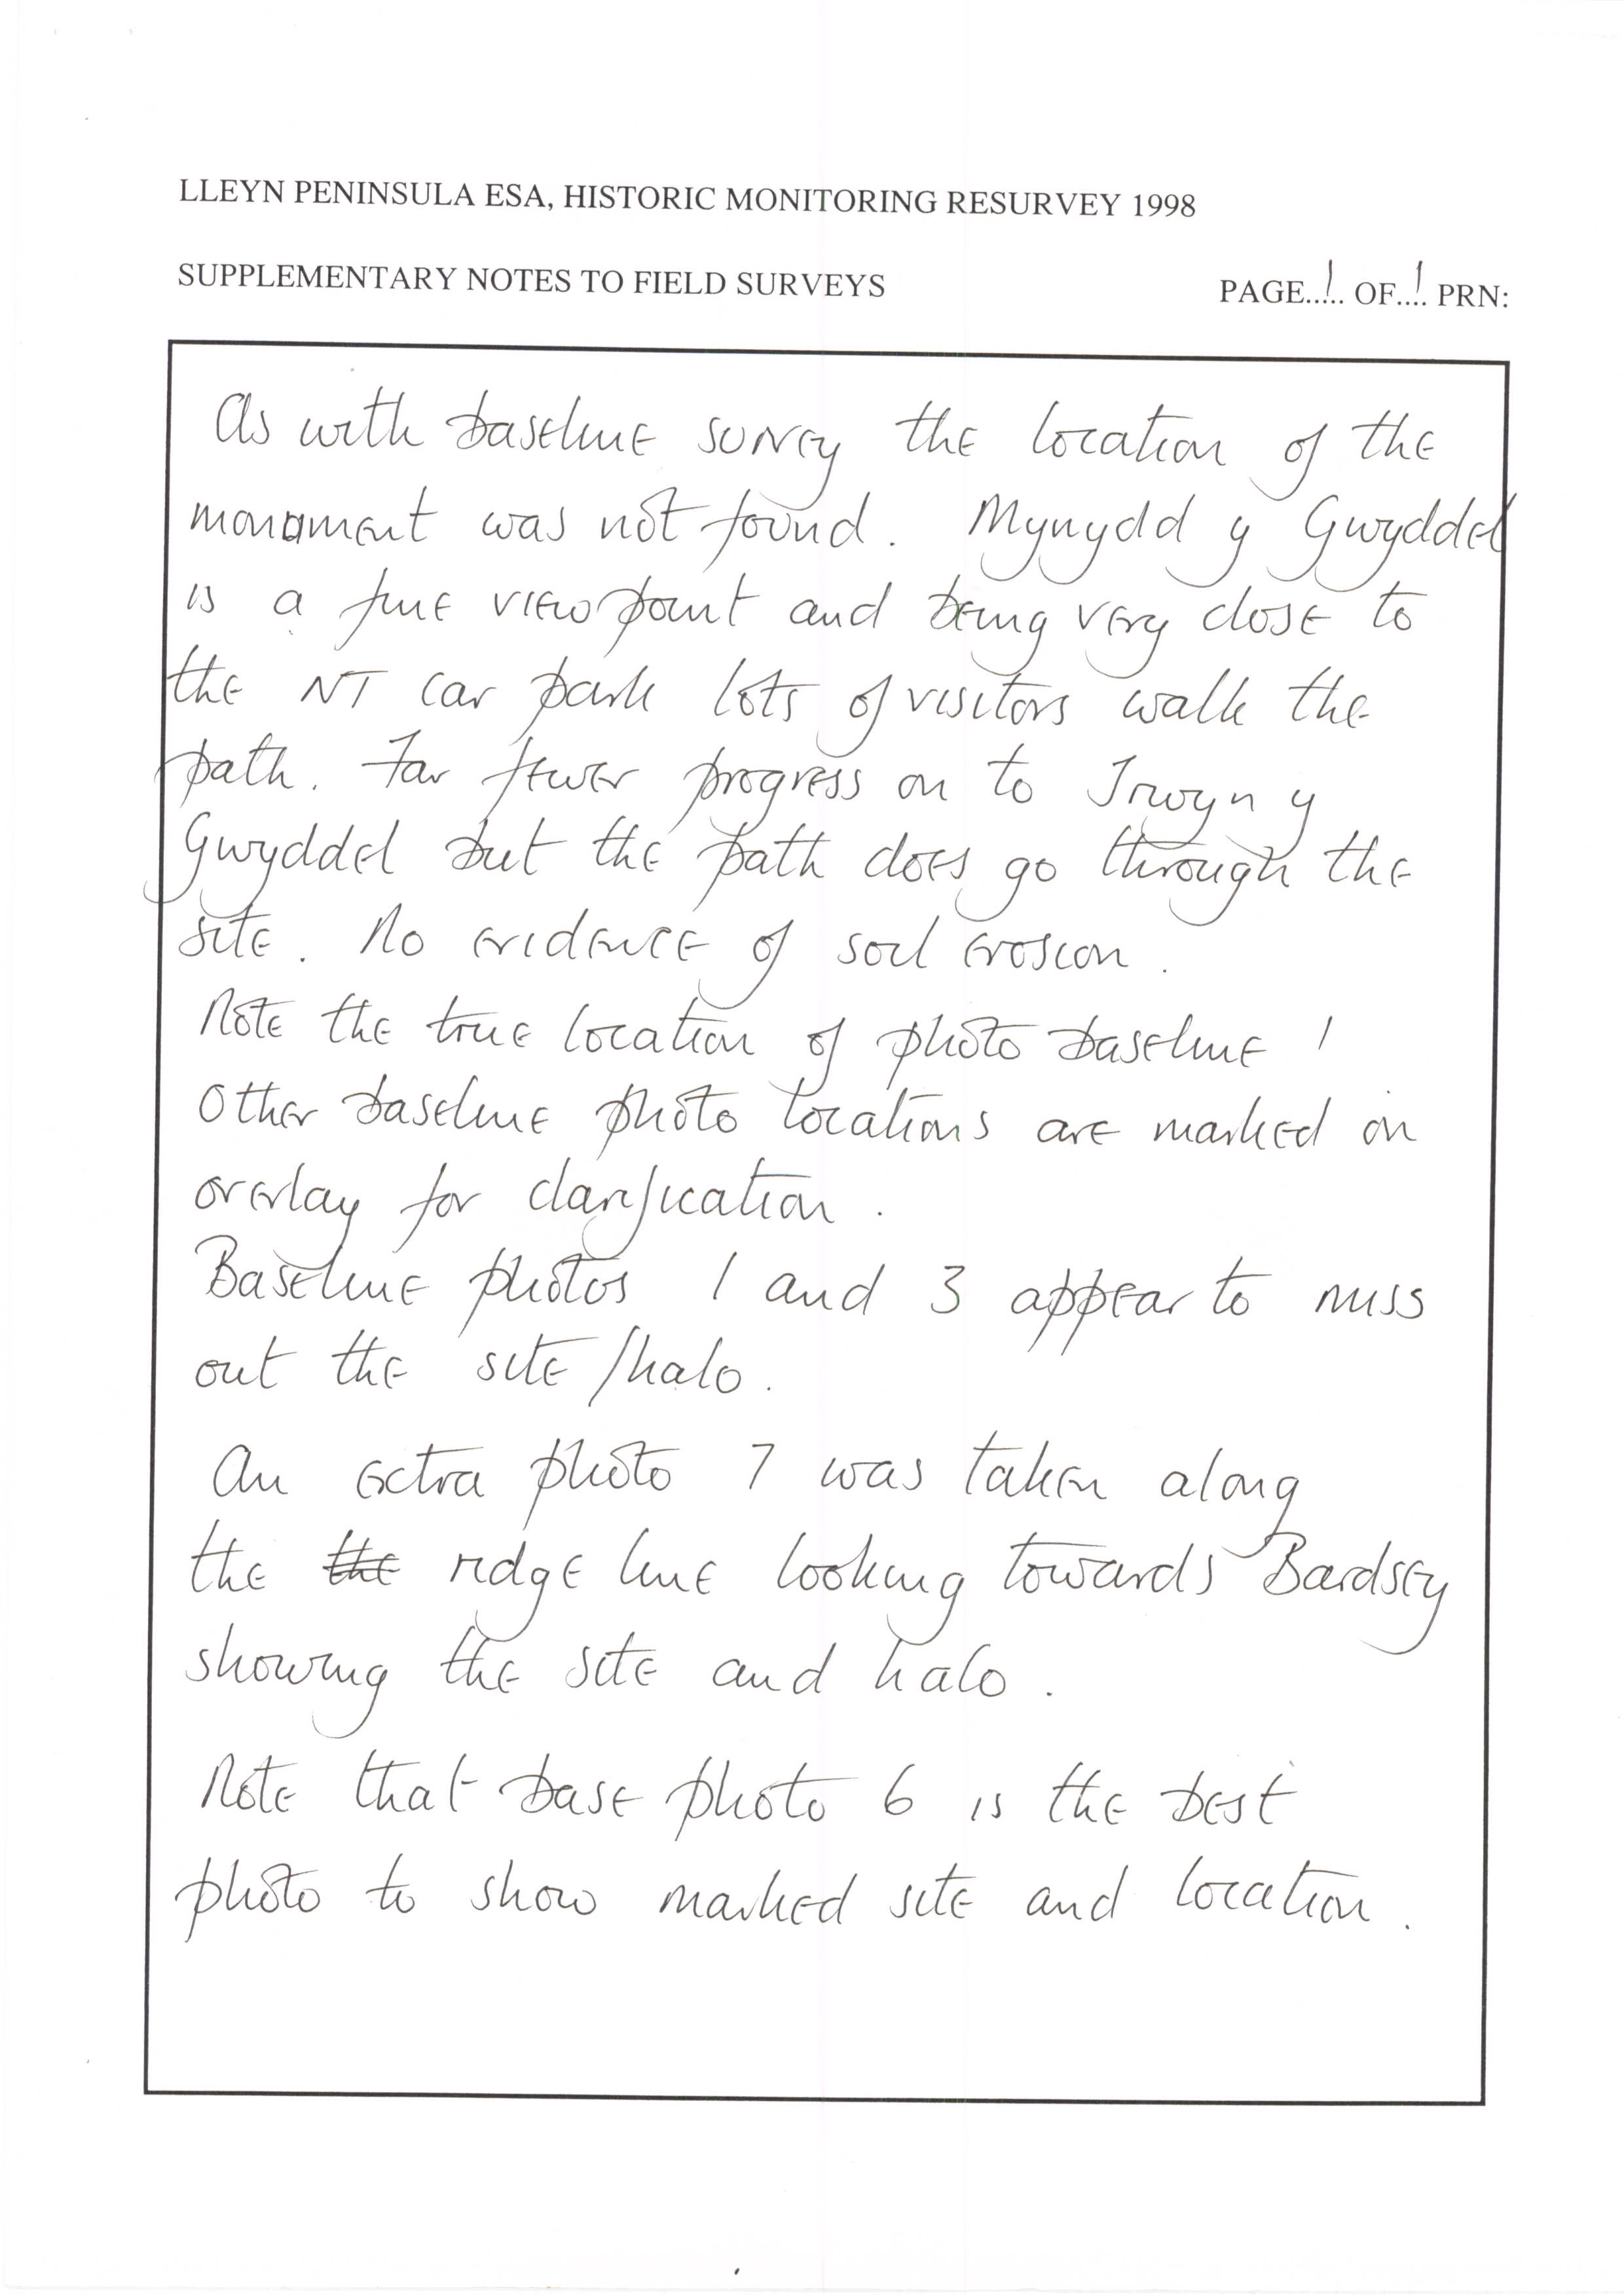 LLEYN PENINSULA ESA, HISTORIC MONITORING RESURVEY 1998
SUPPLEMENTARY NOTES TO FIELD SURVEYS PAGE..1.. OF..1.. PRN:
As with baseline survey the location of the
monument was not found. Mynydd y Gwyddel
is a fine viewpoint and being very close to
the NT car park lots of visitors walk the
path. Far fewer progress on to Trwyn y
Gwyddel but the path does go through the
site. No evidence of soil erosion.
Note the true location of photo baseline 1
Other baseline photo locations are marked on
overlay for clarification.
Baseline photos 1 and 3 appear to miss
out the site/halo.
An extra photo 7 was taken along
the the ridge line looking towards Bardsey
showing the site and halo.
Note that base photo 6 is the best
photo to show marked site and location.